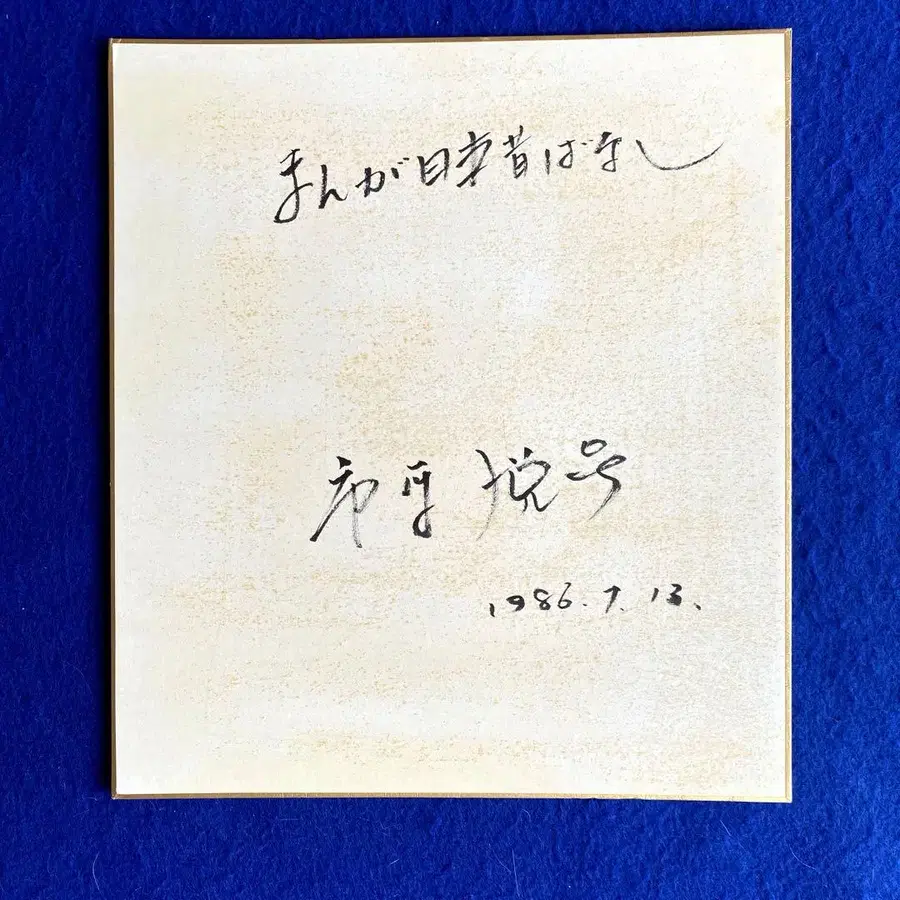 まんが日本昔ばなし
市原悦子
1986.7.13.